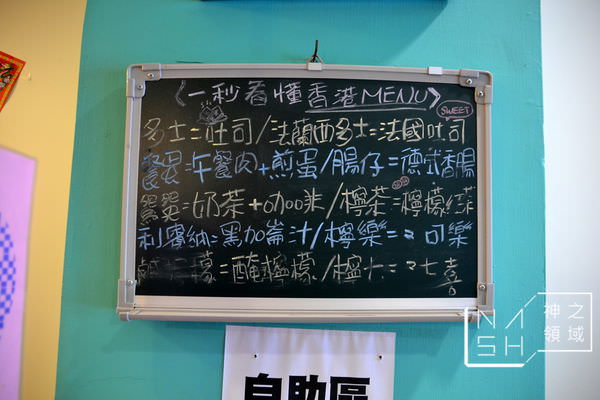 《一秒看懂香港MENU》
SWEET
多士=吐司/法蘭西多士=法國吐司
餐蛋=午餐肉+煎蛋/腸仔=德式香腸
鴛鴦=奶茶+咖啡/檸茶=檸檬紅茶
利賓納=黑加崙汁/檸樂=可樂
鹹檸檬=醃檸檬/檸七=七喜
自助區
NASH
神之
領域